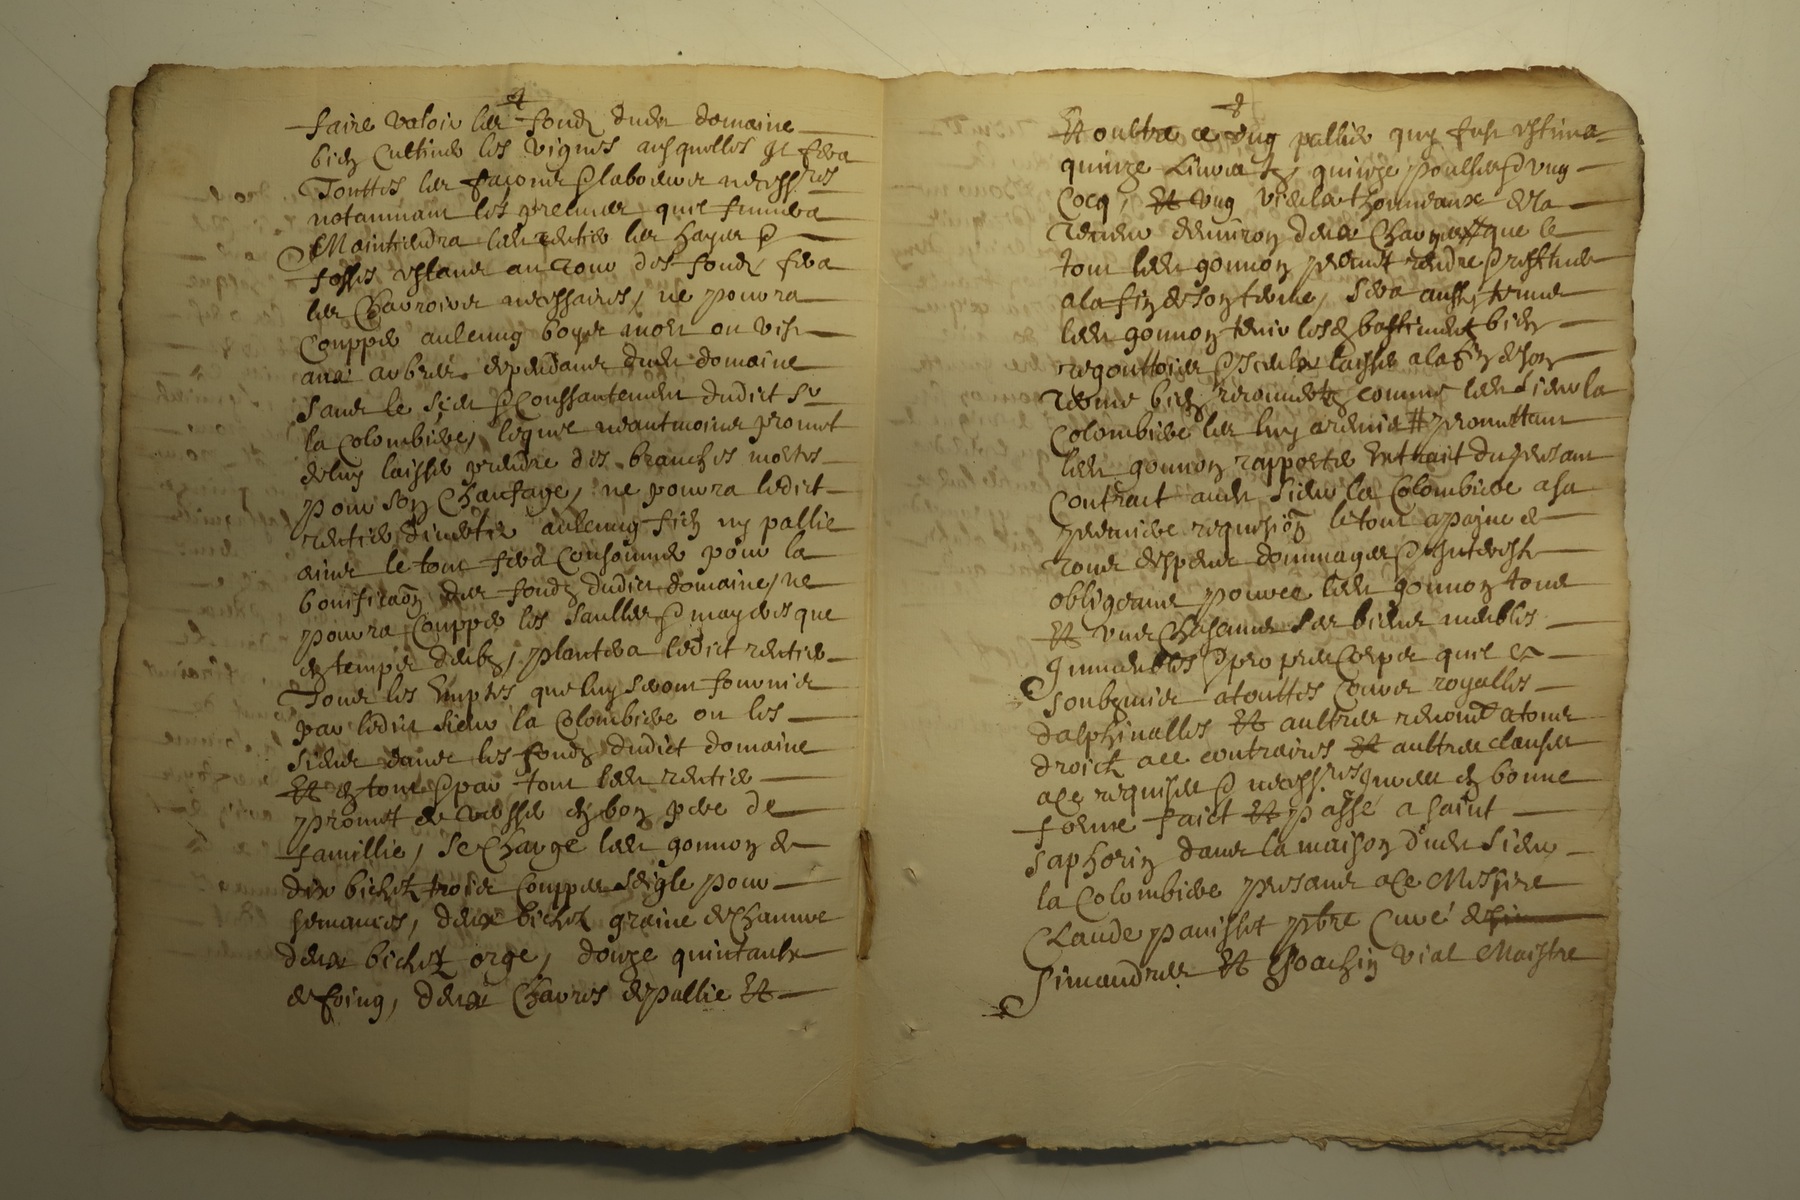 faire valoir les fondz dudit domaine
bien cultiver les vignes ausquelles Il fera
Touttes les façons & labourer necess.res
notammant les preliuer quil fumera
Maintiendra ledit rentier les hayes &
fossés estans au tour des fondz, fera
les Charroirs necessaires, ne pourra
Coupper aulcung boys mort ou vif
aux arbres dependans dudit domaine
sans le sceu & Conssantement dudict sr
la Colombiere, lequel neantmoins promet
de luy laisser prendre des branches mortes
pour son Chaufage, ne pourra ledict
rentier divertir aulcung fien ny pallie
ains le tout sera Consommé pour la
bonificaon des fondz dudict domaine, ne
pourra Coupper les saulles & mayeres que
en temps deub, plantera ledict rentier
Tous les Emptes que luy seront fournis
par ledict sieur la Colombiere ou les
siens dans les fondz dudict domaine
Et en tout & par tout ledit rentier
promet de verser en bon pere de
famillie, se Charge ledit gonnon de
dix bichetz trois Couppes seigle pour
semances, deux bichetz graine de Chanvre
deux bichetz orge, douze quintaulx
de foing, deux Charres de pallie Et
Et oultre ce ung pallier quy fust estimé
quinze Livres tz, quinze poulles & ung
Cocq, Et ung vieulx de la
teneur denviron deux Charges # que le
tout ledit gonnon promet rendre & restituer
a la fin de son terme, sera aussy tenu
ledit gonnon tenir lesd bastimentz bien
regouttoiés & Iceulx laisser a la fin de son
terme bien recouvertz comme ledit sieur la
Colombiere les luy a remis # promettant
ledit gonnon rapporter Extrait du presant
Contract audit sieur la Colombiere a sa
premiere requision le tout a payne de
tous despens dommages & Interestz
obligeant pour ce ledit gonnon tous
Et ungs Chascungs ses biens meubles
Immeubles & propre Corps quil a
soubzmis a touttes Cours royalles
dalphinalles Et aultres renoncé a tous
droictz a ce contraires Et aultres clauses
a ce requises & necess.res en bonne
forme faict Et passé a saint
saphorin dans la maison dudit sieur
la Colombiere presans a ce Messire
Claude panisset pbre Curé de
simandres Et Joachin vial Maistre